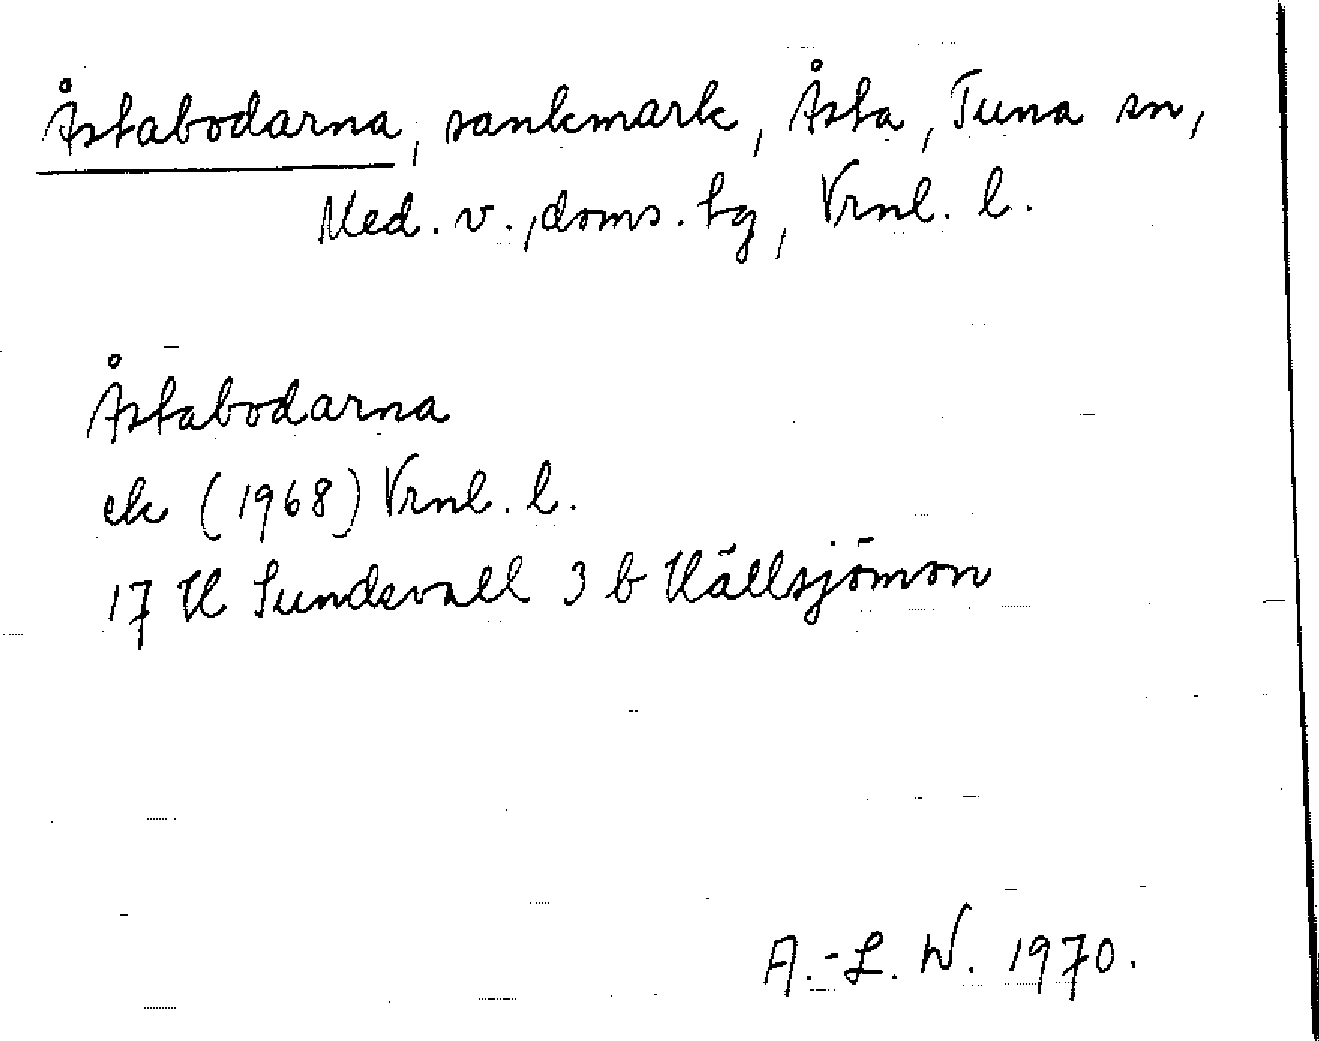 Åstabodarna, sankmark, Åsta, Tuna sn,
Med. v., doms. hg, Vrnl. l.
Åstabodarna
ek (1968) Vrnl. l.
17 H Sundsvall 3 b Hällsjömon
A.-L. W. 1970.